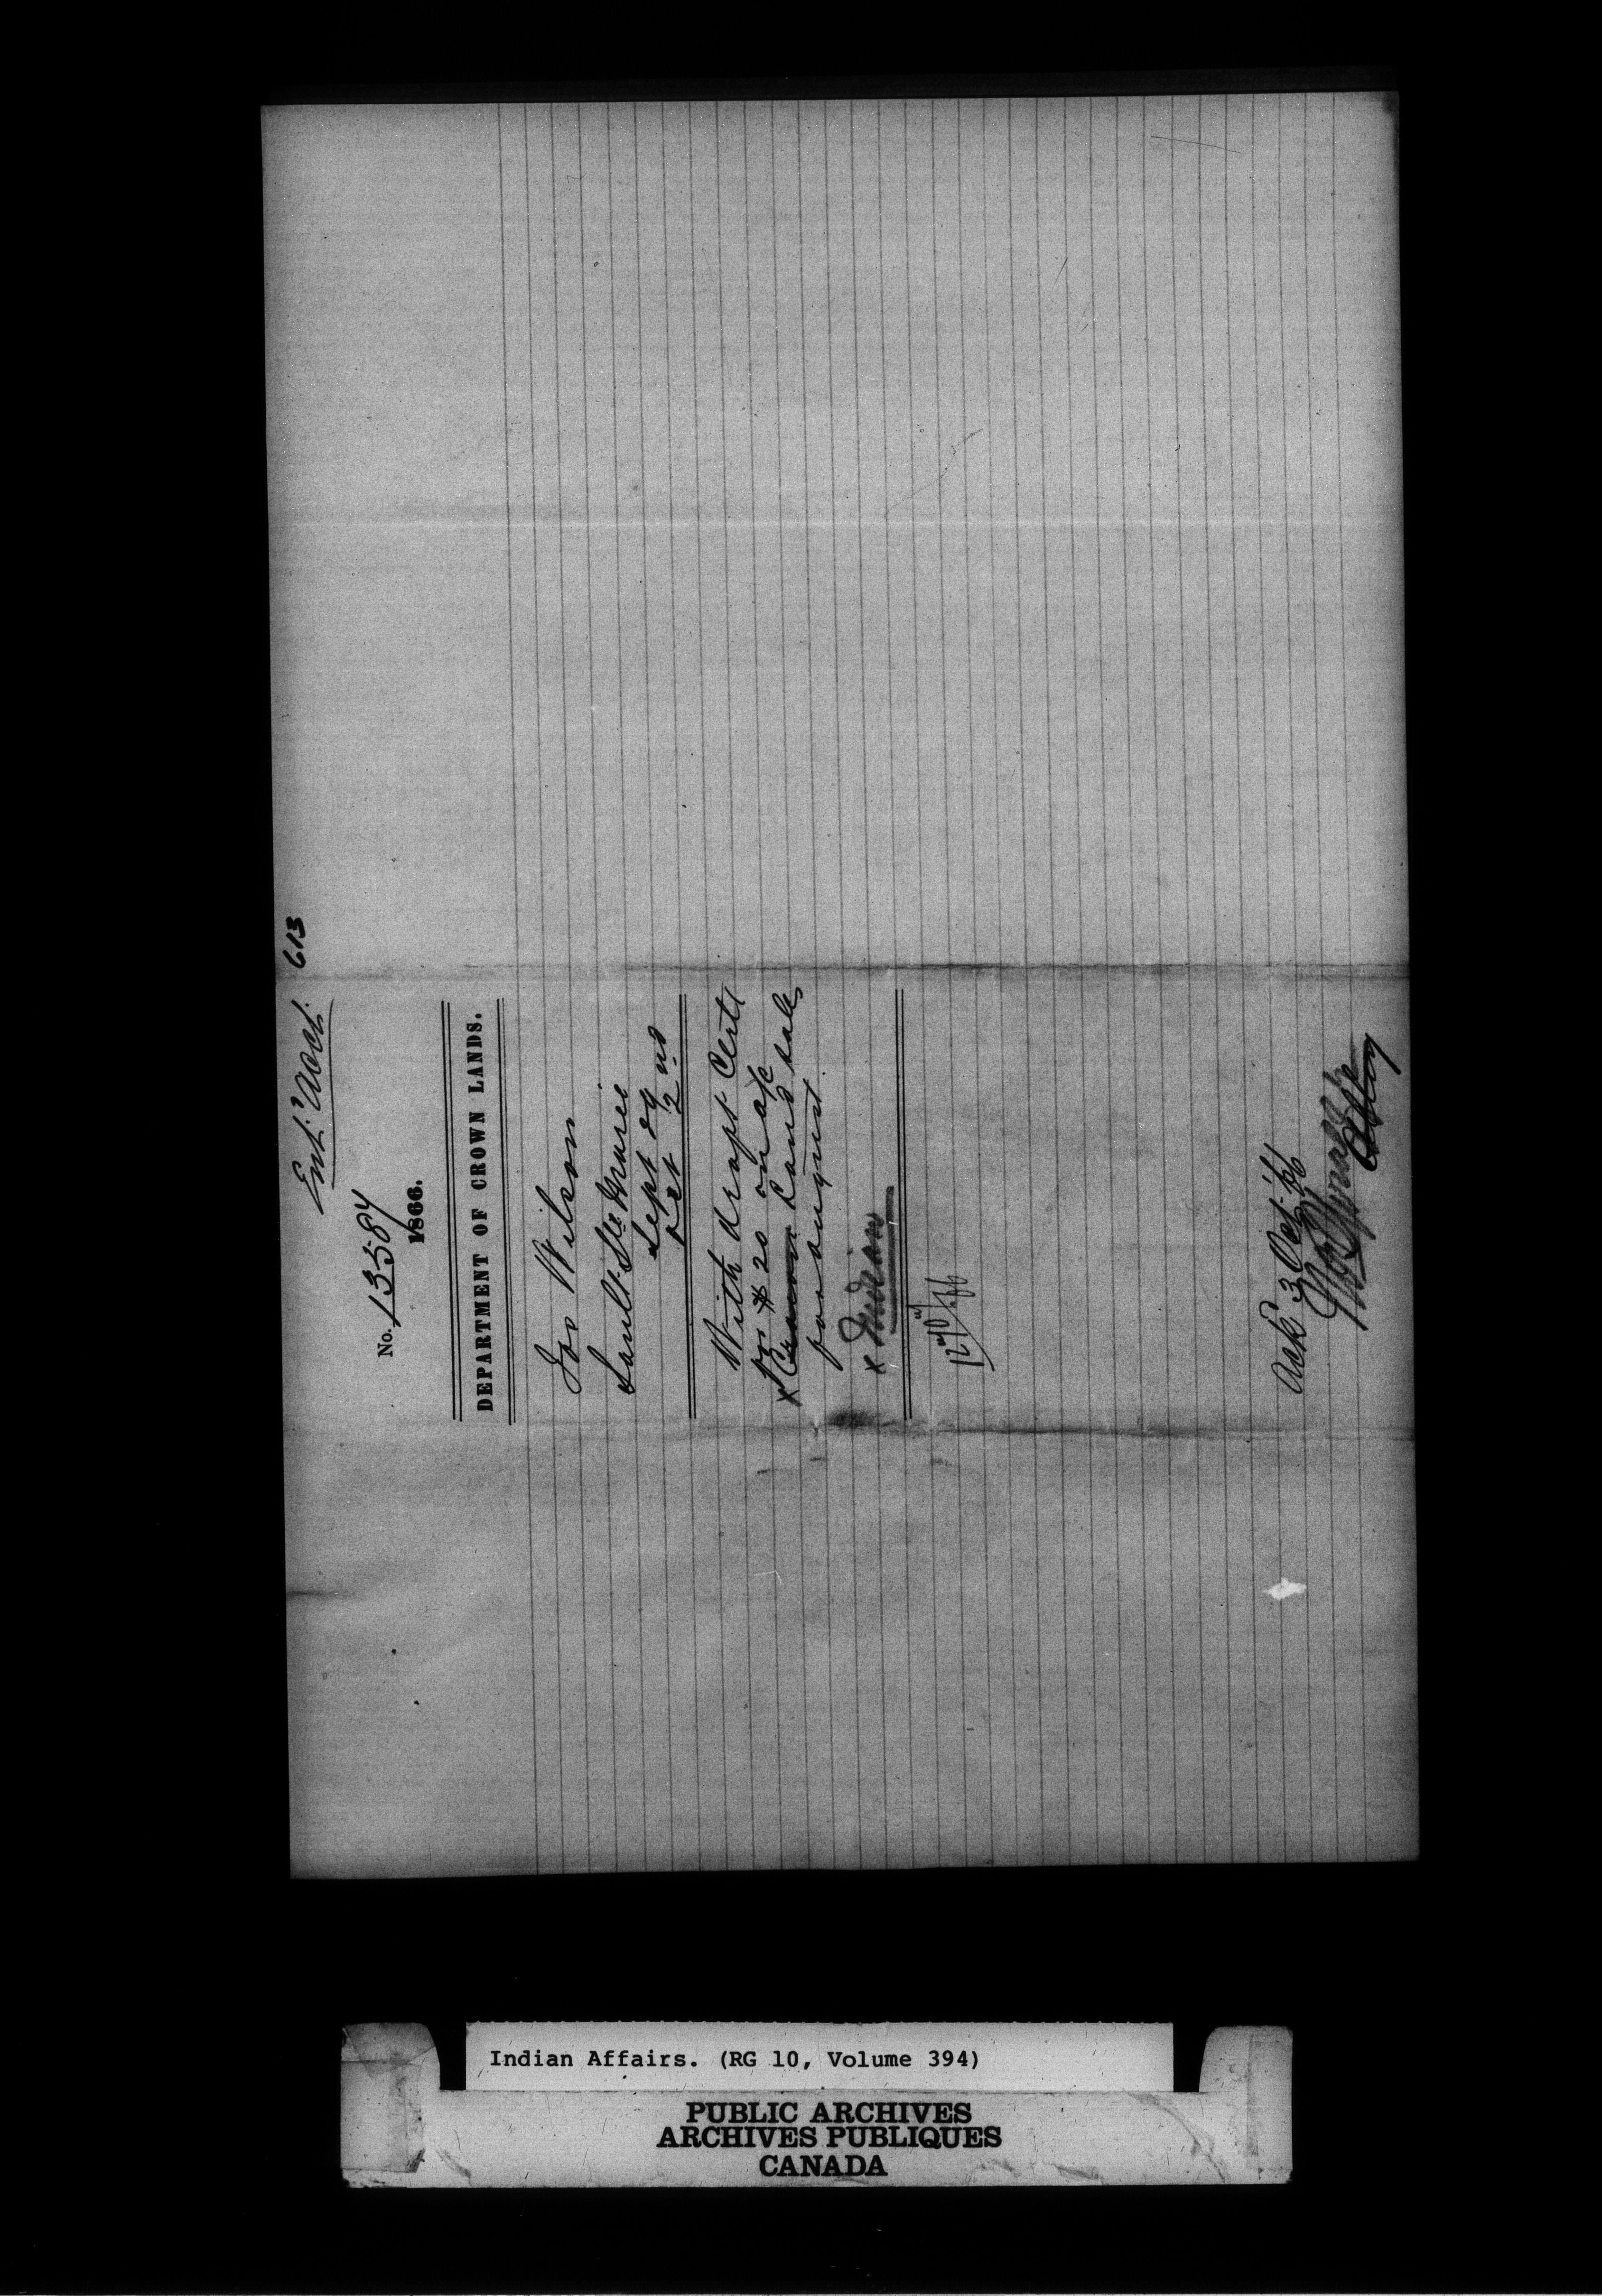 613
Ent.d Acct.
No. 13584
1866.
DEPARTMENT OF CROWN LANDS.
Jos Wilson
Sault Ste Marie
Sept 29
Oct 2nd
With dropt Certe
for $20 on a/c
x Crown Land sales
for August
x Indian
12/10/66
Ackd 3 Oct. 66
Indian Affairs. (RG 10, Volume 394)
PUBLIC ARCHIVES
ARCHIVES PUBLIQUES
CANADA